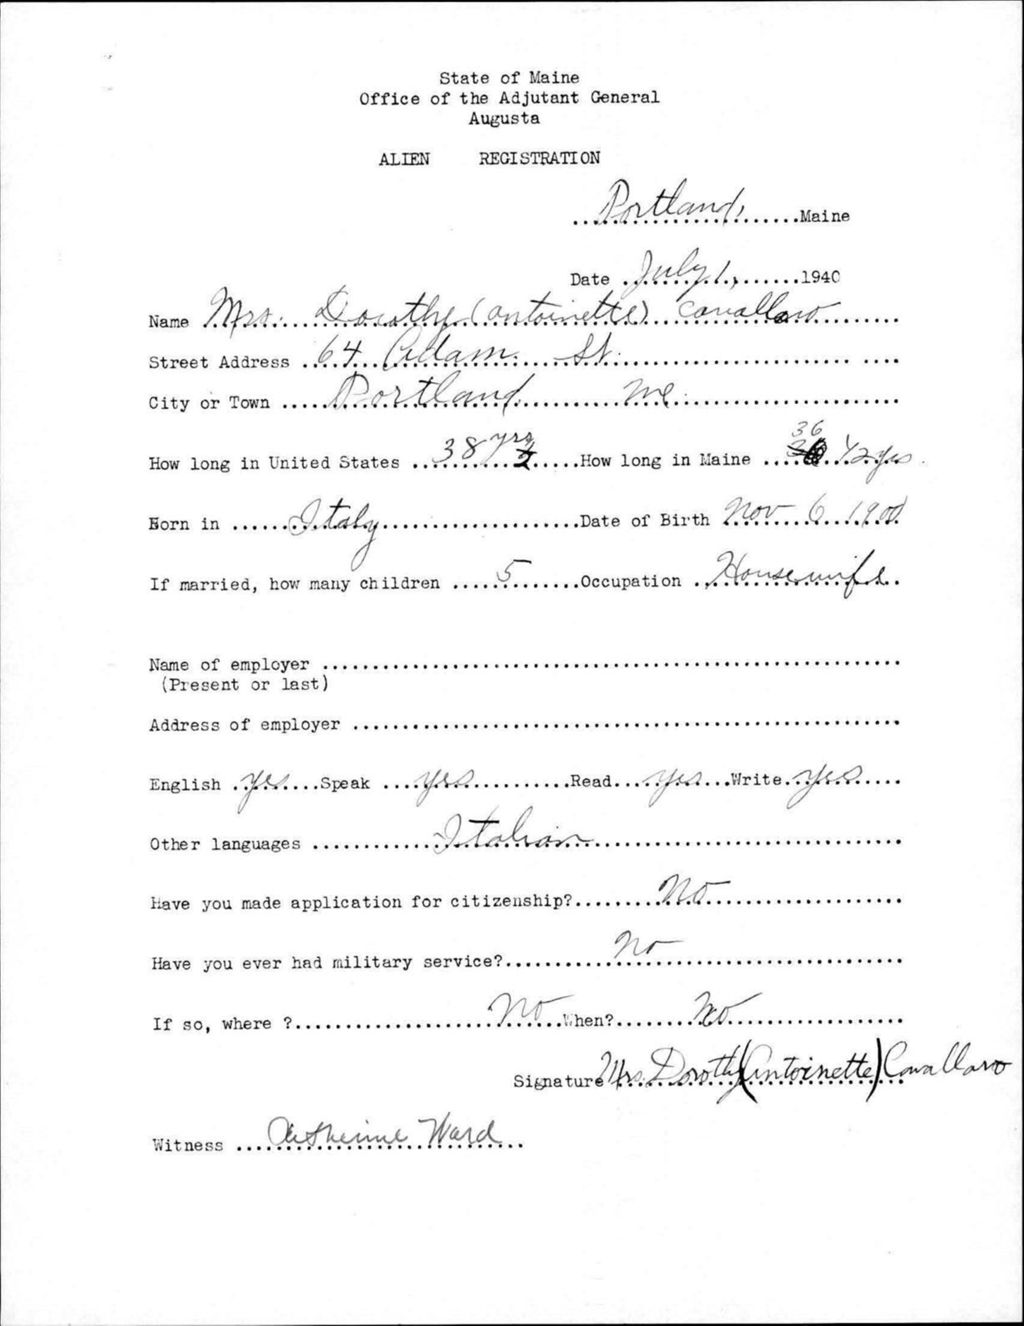 State of Maine
Office of the Adjutant General
Augusta
ALIEN REGISTRATION
Portland, Maine
Date July 1, 1940
Name Mrs. Dorothy (Antoinette) Cavallaro
Street Address 64 Adam St.
City or Town Portland Me.
How long in United States 38 yrs How long in Maine 36 1/2 yrs
Born in Italy Date of Birth Nov 6 1900
If married, how many children 5 Occupation Housewife
Name of employer
(Present or last)
Address of employer
English yes Speak yes Read yes Write yes
Other languages Italian
Have you made application for citizenship? No
Have you ever had military service? No
If so, where ? No When? No
Signature Mrs. Dorothy (Antoinette) Cavallaro
Witness Catherine Ward